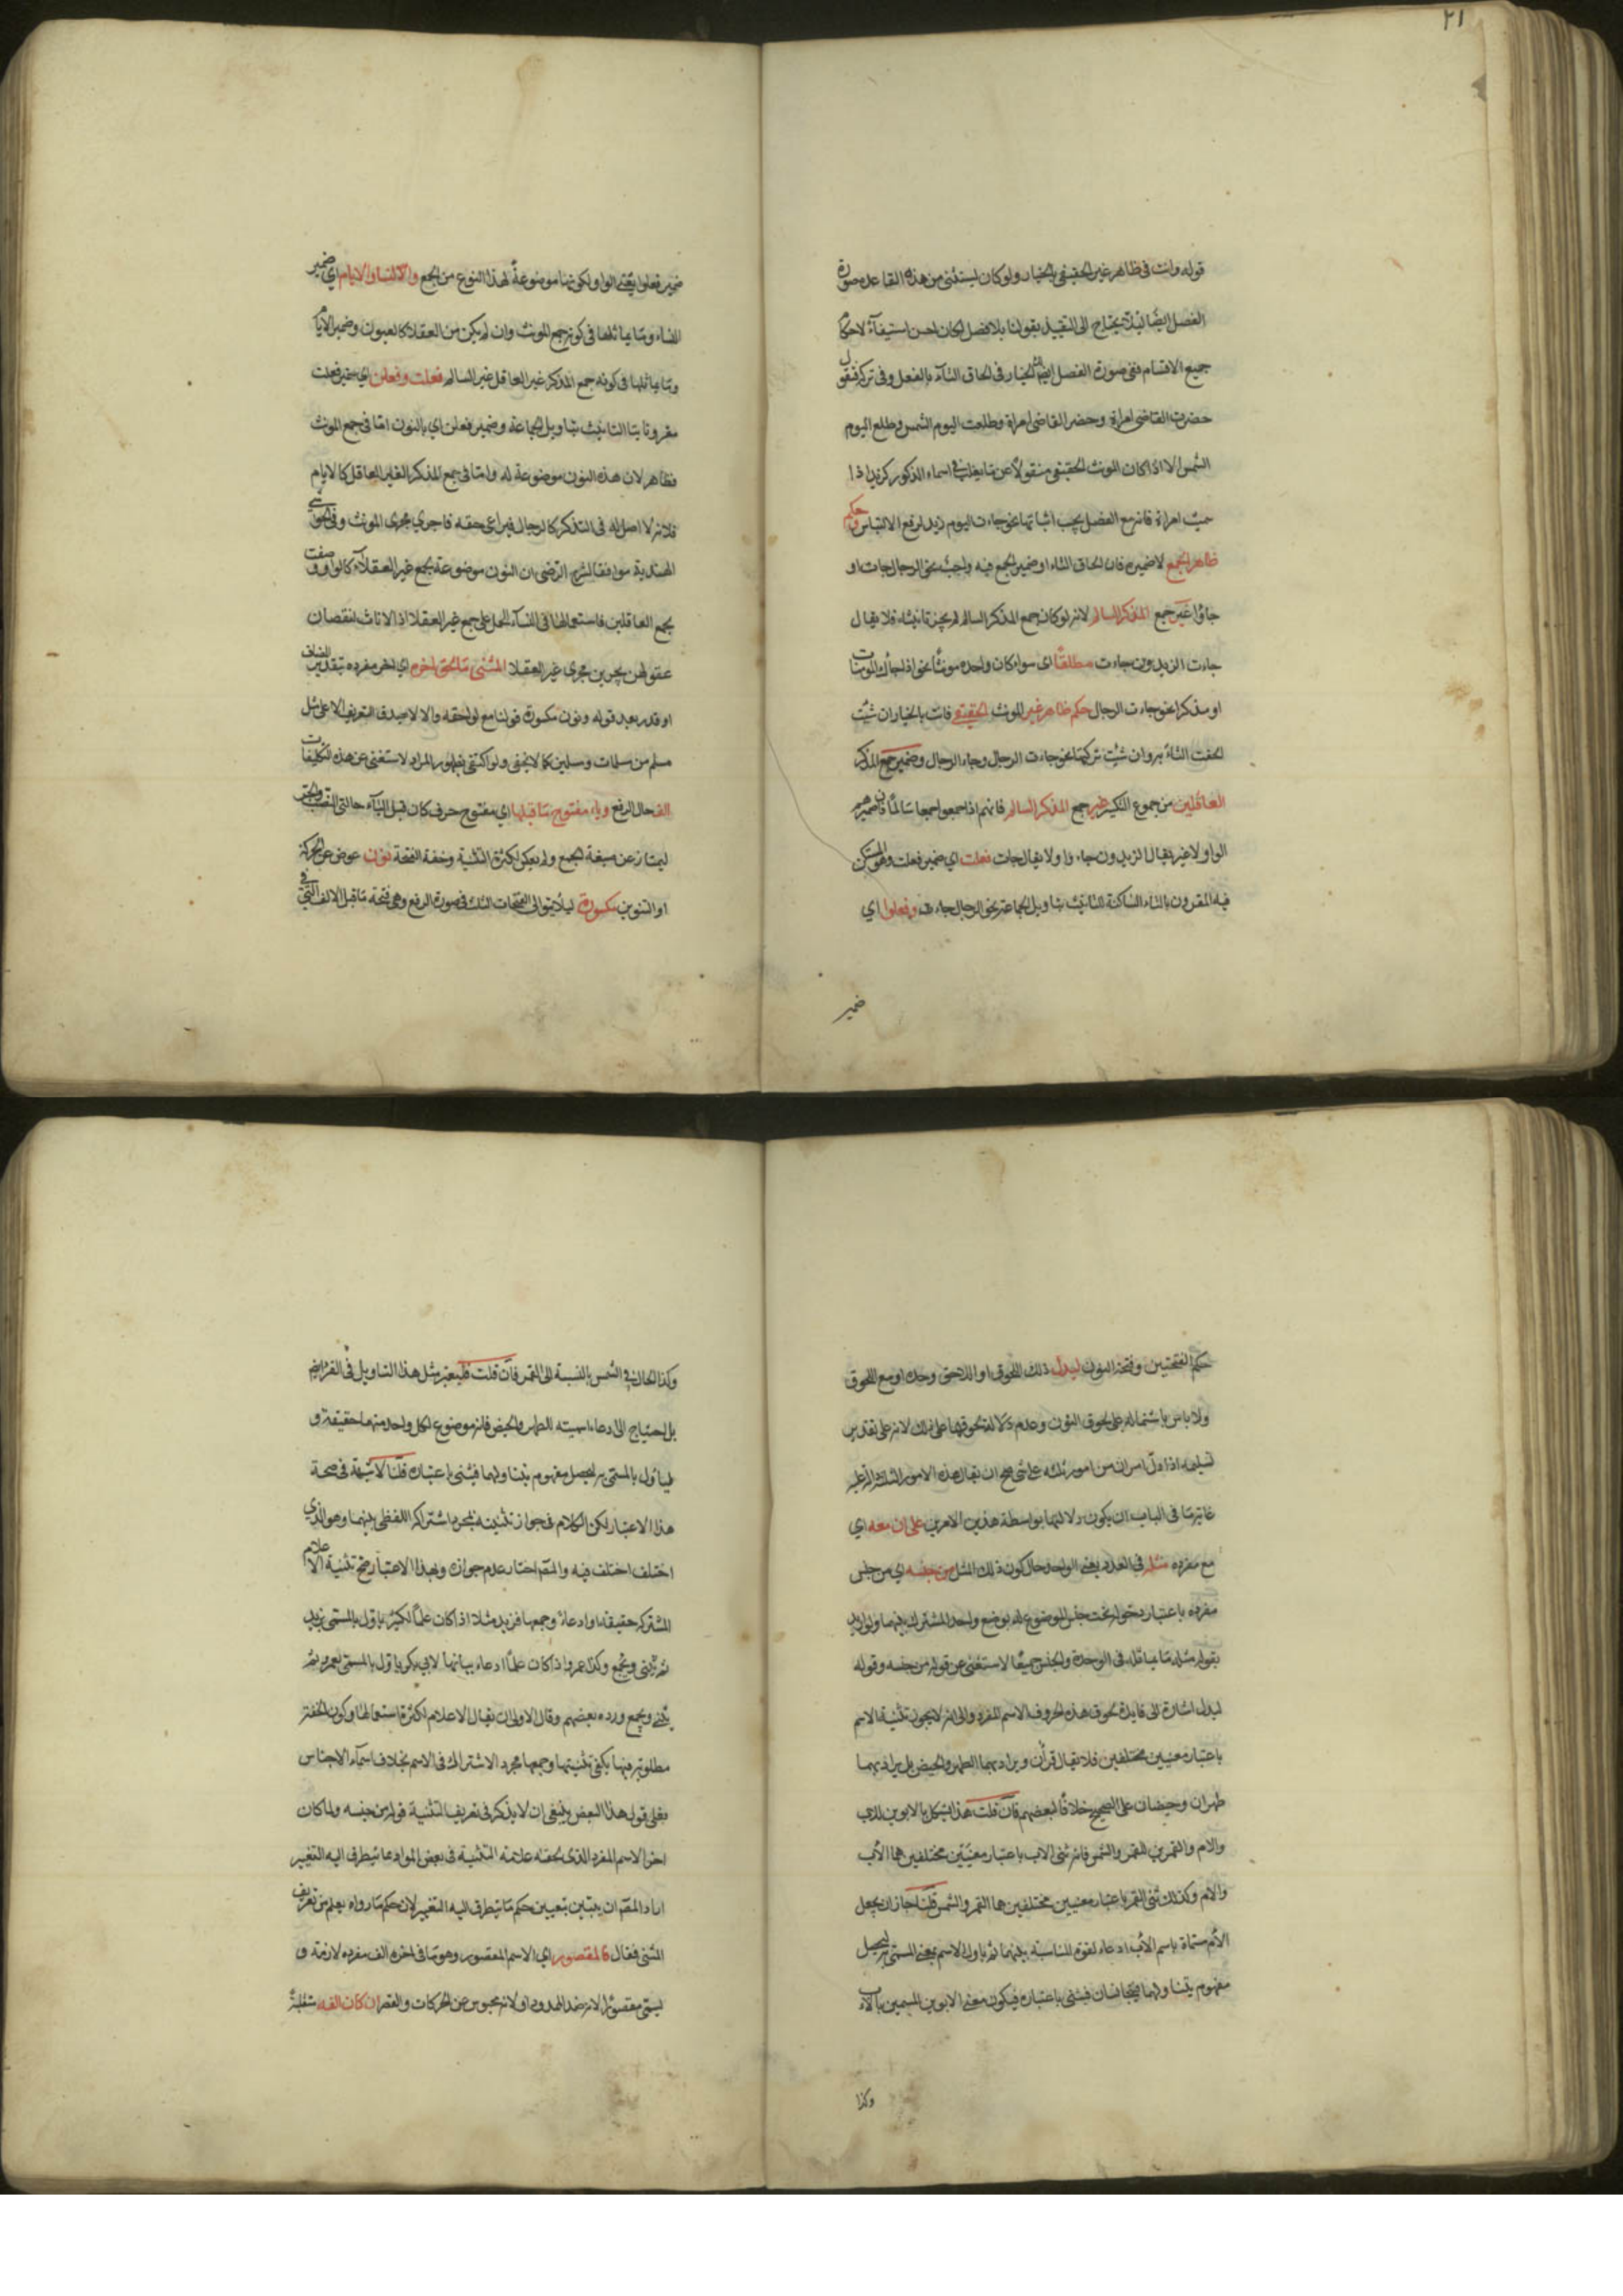 ٢١
قوله وانت فى ظاهر غير الحقيقى بالخيار ولو كان ليستثنى من هذه القاعدة صورة
الفصل ايضا لئلا يحتاج الى التقييد بقولنا بلا فصل لكان احسن استيفآء لاحكام
جميع الاقسام ففى صورة الفصل ايضا لك الخيار فى الحاق التآء بالفعل وفى تركه فتقول
حضرت القاضى امراة وحضر القاضى امراة وطلعت اليوم الشمس وطلع اليوم
الشمس الا اذا كان المونث الحقيقى منقولا عن ما يغلب فى اسماء الذكور كزيد اذا
سميت امراة فانه مع الفصل يجب اثباتها نحو جاءت اليوم زيد لرفع الالتباس وحكم
ظاهر الجمع لا ضميره فان الحاق التاء او ضمير الجمع فيه واجب نحو الرجال جات او
جاؤا غير جمع المذكر السالم لانه لو كان جمع المذكر السالم لم يجز تانيثه فلا يقال
جاءت الزيدون جاءت مطلقا اى سواء كان واحده مونثا نحو اذا جاءك المومنات
او مذكرا نحو جاءت الرجال حكم ظاهر غير المونث الحقيقى فانت بالخيار ان شئت
الحقت التاء به وان شئت تركتها نحو جاءت الرجال وجاء الرجال وضمير جمع المذكر
العاقلين من جموع التكسير غير جمع المذكر السالم فانهم اذا جمعوا جمعا سالما فان ضميرهم
الواو لا غير يقال الزيدون جاءوا ولا يقال جات فعلت اي ضمير فعلت وهو المستكن
فيه المقرون بالتاء الساكنة للتانيث بتاويل الجماعة نحو الرجال جاءت وفعلوا اي
ضمير
ضمير فعلوا يعنى الواو لكونها موضوعة لهذا النوع من الجمع والنسا والايام اي ضمير
النساء وما يماثلها فى كونه جمع المونث وان لم يكن من العقلاء كالعيون وضمير الايام
وما يماثلها فى كونه جمع المذكر غير العاقل غير السالم فعلت وفعلن اي ضمير فعلت
مقرونا بتا التانيث بتاويل الجماعة وضمير فعلن اي بالنون اما فى جمع المونث
فظاهر لان هذه النون موضوعة له واما فى جمع المذكر الغير العاقل كالايام
فلانه لا اصل له فى التذكير كالرجال فيراعى حقه فاجري مجرى المونث وفى الحواشى
الهندية موافقا لشرح الرضى ان النون موضوعة لجمع غير العقلآء كالواو وضعت
لجمع العاقلين فاستعمالها فى النسآء للحمل على جمع غير العقلا اذ الاناث لنقصان
عقولهن يجرين مجرى غير العقلا المثنى ما لحق اخره اي اخر مفرده بتقدير المضاف
او قدر بعد قوله ونون مكسورة قولنا مع لواحقه والا لا يصدق التعريف الا على مثل
مسلم من مسلمان ومسلمين كما لا يخفى ولو اكتفى بظهور المراد لاستغنى عن هذه التكليفات
الف حال الرفع وياء مفتوح ما قبلها اي مفتوح حرف كان قبل اليآء حالتى النصب والجر
ليمتاز عن صيغة الجمع ولم يعكس لكثرة التثنية وخفة الفتحة ونون عوض عن الحركة
او التنوين مكسورة ليلا يتوالى الفتحات الثلث فى صورة الرفع وهى فتحة ما قبل الالف التى فى
حكم الفتحتين وفتحة النون ليدل ذلك اللحوق او اللاحق وحده او مع اللحوق
ولا باس باشتماله على لحوق النون وعدم دلالة لحوقها على ذلك لانه على تقدير
تسليمه اذا دل امران من امور ثلثة على شى صح ان يقال هذه الامور الثلثة دالة عليه
غاية ما فى الباب ان يكون دلالتها بواسطة هذين الامرين على ان معه اي
مع مفرده مثله فى العدد يعنى الواحد حال كون ذلك المثل من جنسه اي من جنس
مفرده باعتبار دخوله تحت جنس الموضوع له بوضع واحد المشترك بينهما ولو اريد
بقوله مثله ما يماثله فى الوحدة والجنس جميعا لاستغنى عن قوله من جنسه وقوله
ليدل اشارة الى فايدة لحوق هذه الحروف الاسم المفرد والى انه لا يجوز تثنية الاسم
باعتبار معنيين مختلفين فلا يقال قرأن ويراد بهما الطهر والحيض بل يراد بهما
طهران وحيضان على الصحيح خلافا لبعضهم فان قلت هذا يشكل بالابوين للاب
والام والقمرين للقمر والشمس فانه ثنى الاب باعتبار معنيين مختلفين هما الاب
والام وكذلك ثنى القمر باعتبار معنيين مختلفين هما القمر والشمس قلنا جاز ان يجعل
الام مسماة باسم الاب ادعاء لقوة المناسبة بينهما ثم ياول الاسم بمعنى المسمى به ليحصل
مفهوم يتناولهما فيتجانسان فيثنى باعتباره فيكون معنى الابوين المسميين بالاب
وكذا
وكذا الحال فى الشمس بالنسبة الى القمر فان قلت فليعتبر مثل هذا التاويل فى القرء ايضا
بلا احتياج الى ادعاء اسميته للطهر والحيض فانه موضوع لكل واحد منهما حقيقة و
لياول بالمسمى به ليحصل مفهوم يتناولهما فيثنى باعتباره قلنا لا شبهة فى صحة
هذا الاعتبار لكن الكلام فى جواز تثنيته بمجرد اشتراك اللفظى بينهما وهو الذي
اختلف اختلف فيه والمص اختار عدم جوازه وبهذا الاعتبار صح تثنية الاعلام
المشتركة حقيقة او ادعاء وجمعها فزيد مثلا اذا كان علما لكثير ياول بالمسمى بزيد
ثم يثنى ويجمع وكذا عمر واذا كان علما ادعاء لابي بكر ياول بالمسمى بعمر ثم
يثنى ويجمع ورده بعضهم وقال الاولى ان يقال الاعلام لكثرة استعمالها وكون الخفة
مطلوبة فيها يكفى تثنيتها وجمعها مجرد الاشتراك فى الاسم بخلاف اسمآء الاجناس
فعلى قول هذا البعض ينبغى ان لا يذكر فى تعريف التثنية قوله من جنسه ولما كان
اخر الاسم المفرد الذى لحقه علامة التثنية فى بعض المواد مما يتطرق اليه التغيير
اراد المص ان يبين حكم ما يتطرق اليه التغيير لان حكم ما وراه يعلم من تعريف
المثنى فقال فالمقصور اي الاسم المقصور وهو ما فى اخره الف مفرده لازمة و
يسمى مقصورا لانه ضد الممدود او لانه محبوس عن الحركات والقصر ان كان الفه منقلبة